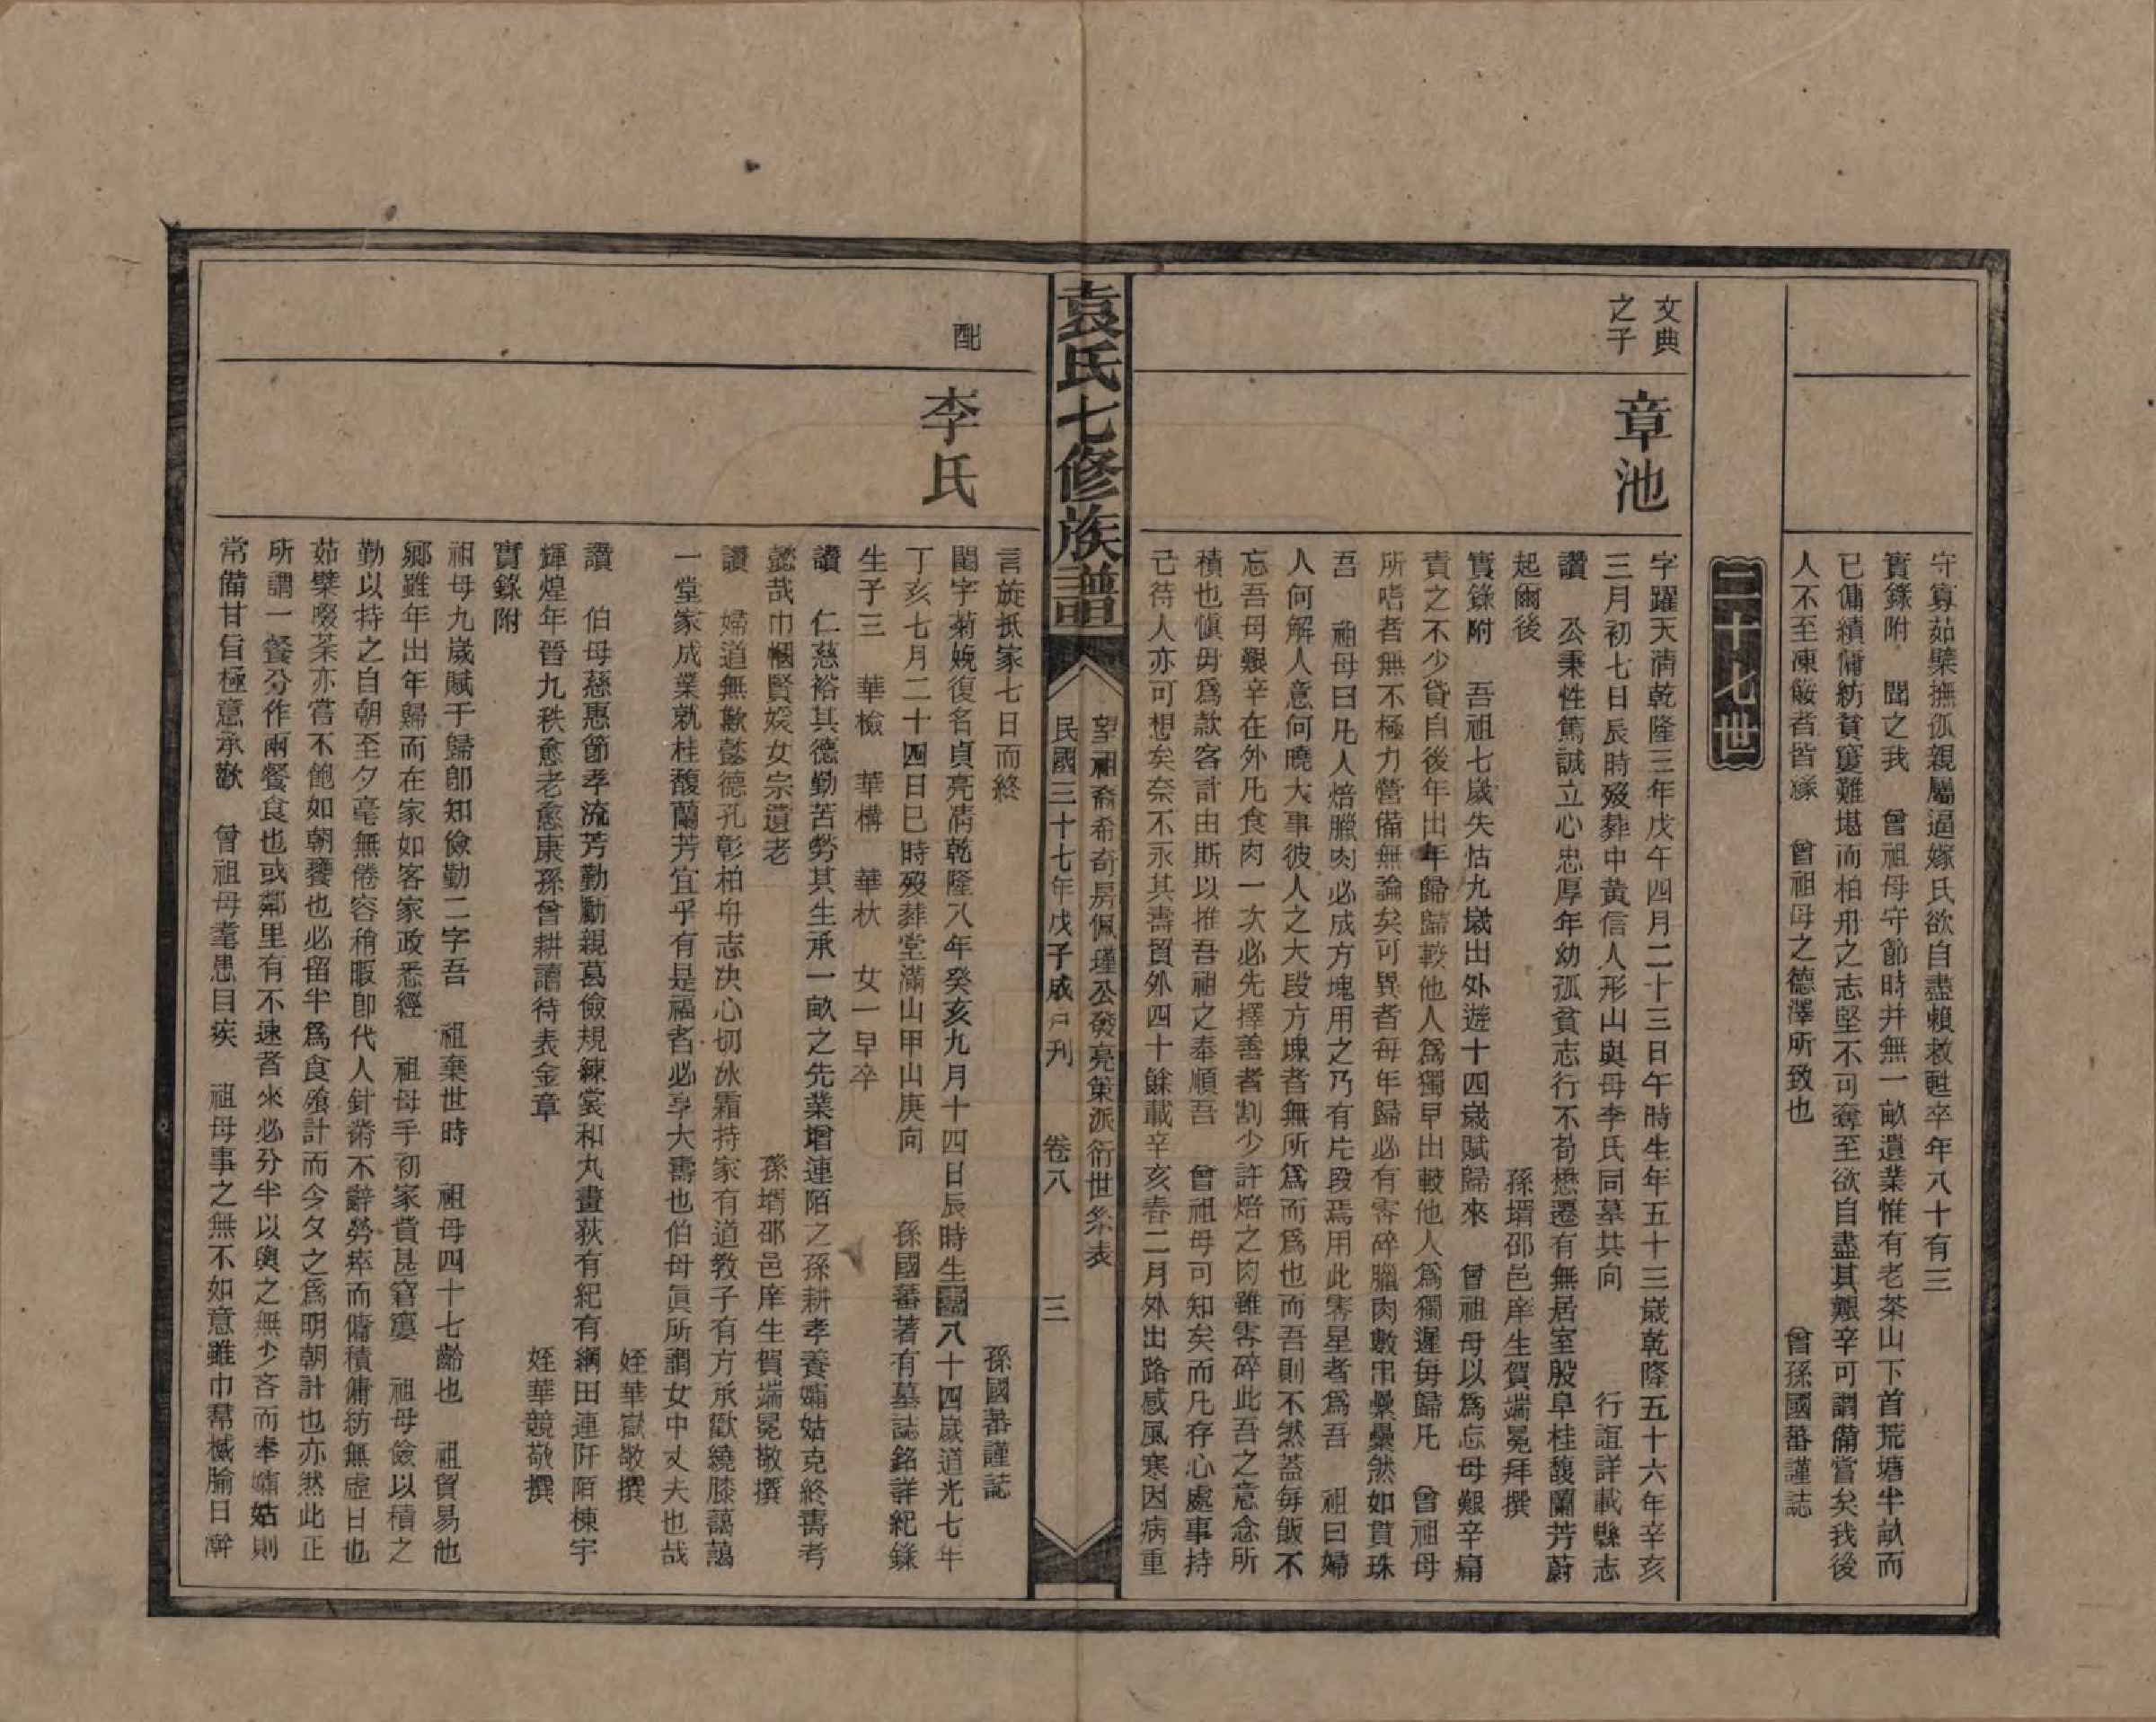 守寡茹櫱撫孤親屬逼嫁氏欲自盡賴救甦卒年八十有三
實錄附　聞之我　曾祖母守節時并無一畝遺業惟有老茶山下首荒塘半畝而
已傭績傭紡貧窶難堪而柏舟之志堅不可奪至欲自盡其艱辛可謂備嘗矣我後
人不至凍餒者皆緣　曾祖母之德澤所致也　曾孫國蕃謹誌
二十七世
文典
之子
章池
字躍天淸乾隆三年戊午四月二十三日午時生年五十三歲乾隆五十六年辛亥
三月初七日辰時歿葬中黃信人形山與母李氏同墓共向　行誼詳載縣志
讚　公秉性篤誠立心忠厚年幼孤貧志行不苟懋遷有無居室殷阜桂馥蘭芳蔚
起爾後　孫壻邵邑庠生賀端冕拜撰
實錄附　吾祖七歲失怙九歲出外遊十四歲賦歸來　曾祖母以爲忘母艱辛痛
責之不少貸自後年出年歸歸較他人爲獨早出較他人爲獨遲每歸凡　曾祖母
所嗜者無不極力營備無論矣可異者每年歸必有零碎臘肉數串纍纍然如貫珠
吾　祖母曰凡人焙臘肉必成方塊用之乃有片段焉用此零星者爲吾　祖曰婦
人何解人意何曉大事彼人之大段方塊者無所爲而爲也而吾則不然蓋每飯不
忘吾母艱辛在外凡食肉一次必先擇善者割少許焙之肉雖零碎此吾之意念所
積也愼毋爲款客計由斯以推吾祖之奉順吾　曾祖母可知矣而凡存心處事持
己待人亦可想矣奈不永其壽貿外四十餘載辛亥春二月外出路感風寒因病重
袁氏七修族譜
望祖裔希奇房佩瑾公發亮策派衍世系表
民國三十七年戊子歲　刊　卷八　三
言旋抵家七日而終　孫國蕃謹誌
配
李氏
閨字菊娩復名貞亮淸乾隆八年癸亥九月十四日辰時生壽八十四歲道光七年
丁亥七月二十四日巳時歿葬堂滿山甲山庚向　孫國蕃著有墓誌銘詳紀錄
生子三　華檢　華構　華狀　女一早卒
讚　仁慈裕其德勤苦勞其生承一畝之先業增連陌之孫耕孝養孀姑克終壽考
懿哉巾幗賢媛女宗遺老　孫壻邵邑庠生賀端冕敬撰
讚　婦道無歉懿德孔彰柏舟志決心切氷霜持家有道教子有方承歡繞膝藹藹
一堂家成業就桂馥蘭芳宜乎有是福者必享大壽也伯母眞所謂女中丈夫也哉
姪華嶽敬撰
讚　伯母慈惠節孝流芳勤勵親葛儉規練裳和丸畫荻有紀有綱田連阡陌棟宇
輝煌年晉九秩愈老愈康孫曾耕讀待表金章　姪華競敬撰
實錄附
祖母九歲賦于歸卽知儉勤二字吾　祖棄世時　祖母四十七齡也　祖貿易他
鄉雖年出年歸而在家如客家政悉經　祖母手初家貲甚窘窶　祖母儉以積之
勤以持之自朝至夕毫無倦容稍暇卽代人針黹不辭勞瘁而傭積傭紡無虛日也
茹櫱啜荼亦嘗不飽如朝饔也必留半爲食飧計而今夕之爲明朝計也亦然此正
所謂一餐分作兩餐食也或鄰里有不速者來必分半以與之無少吝而奉孀姑則
常備甘旨極意承歡　曾祖母耄患目疾　祖母事之無不如意雖巾幂楲牏日澣